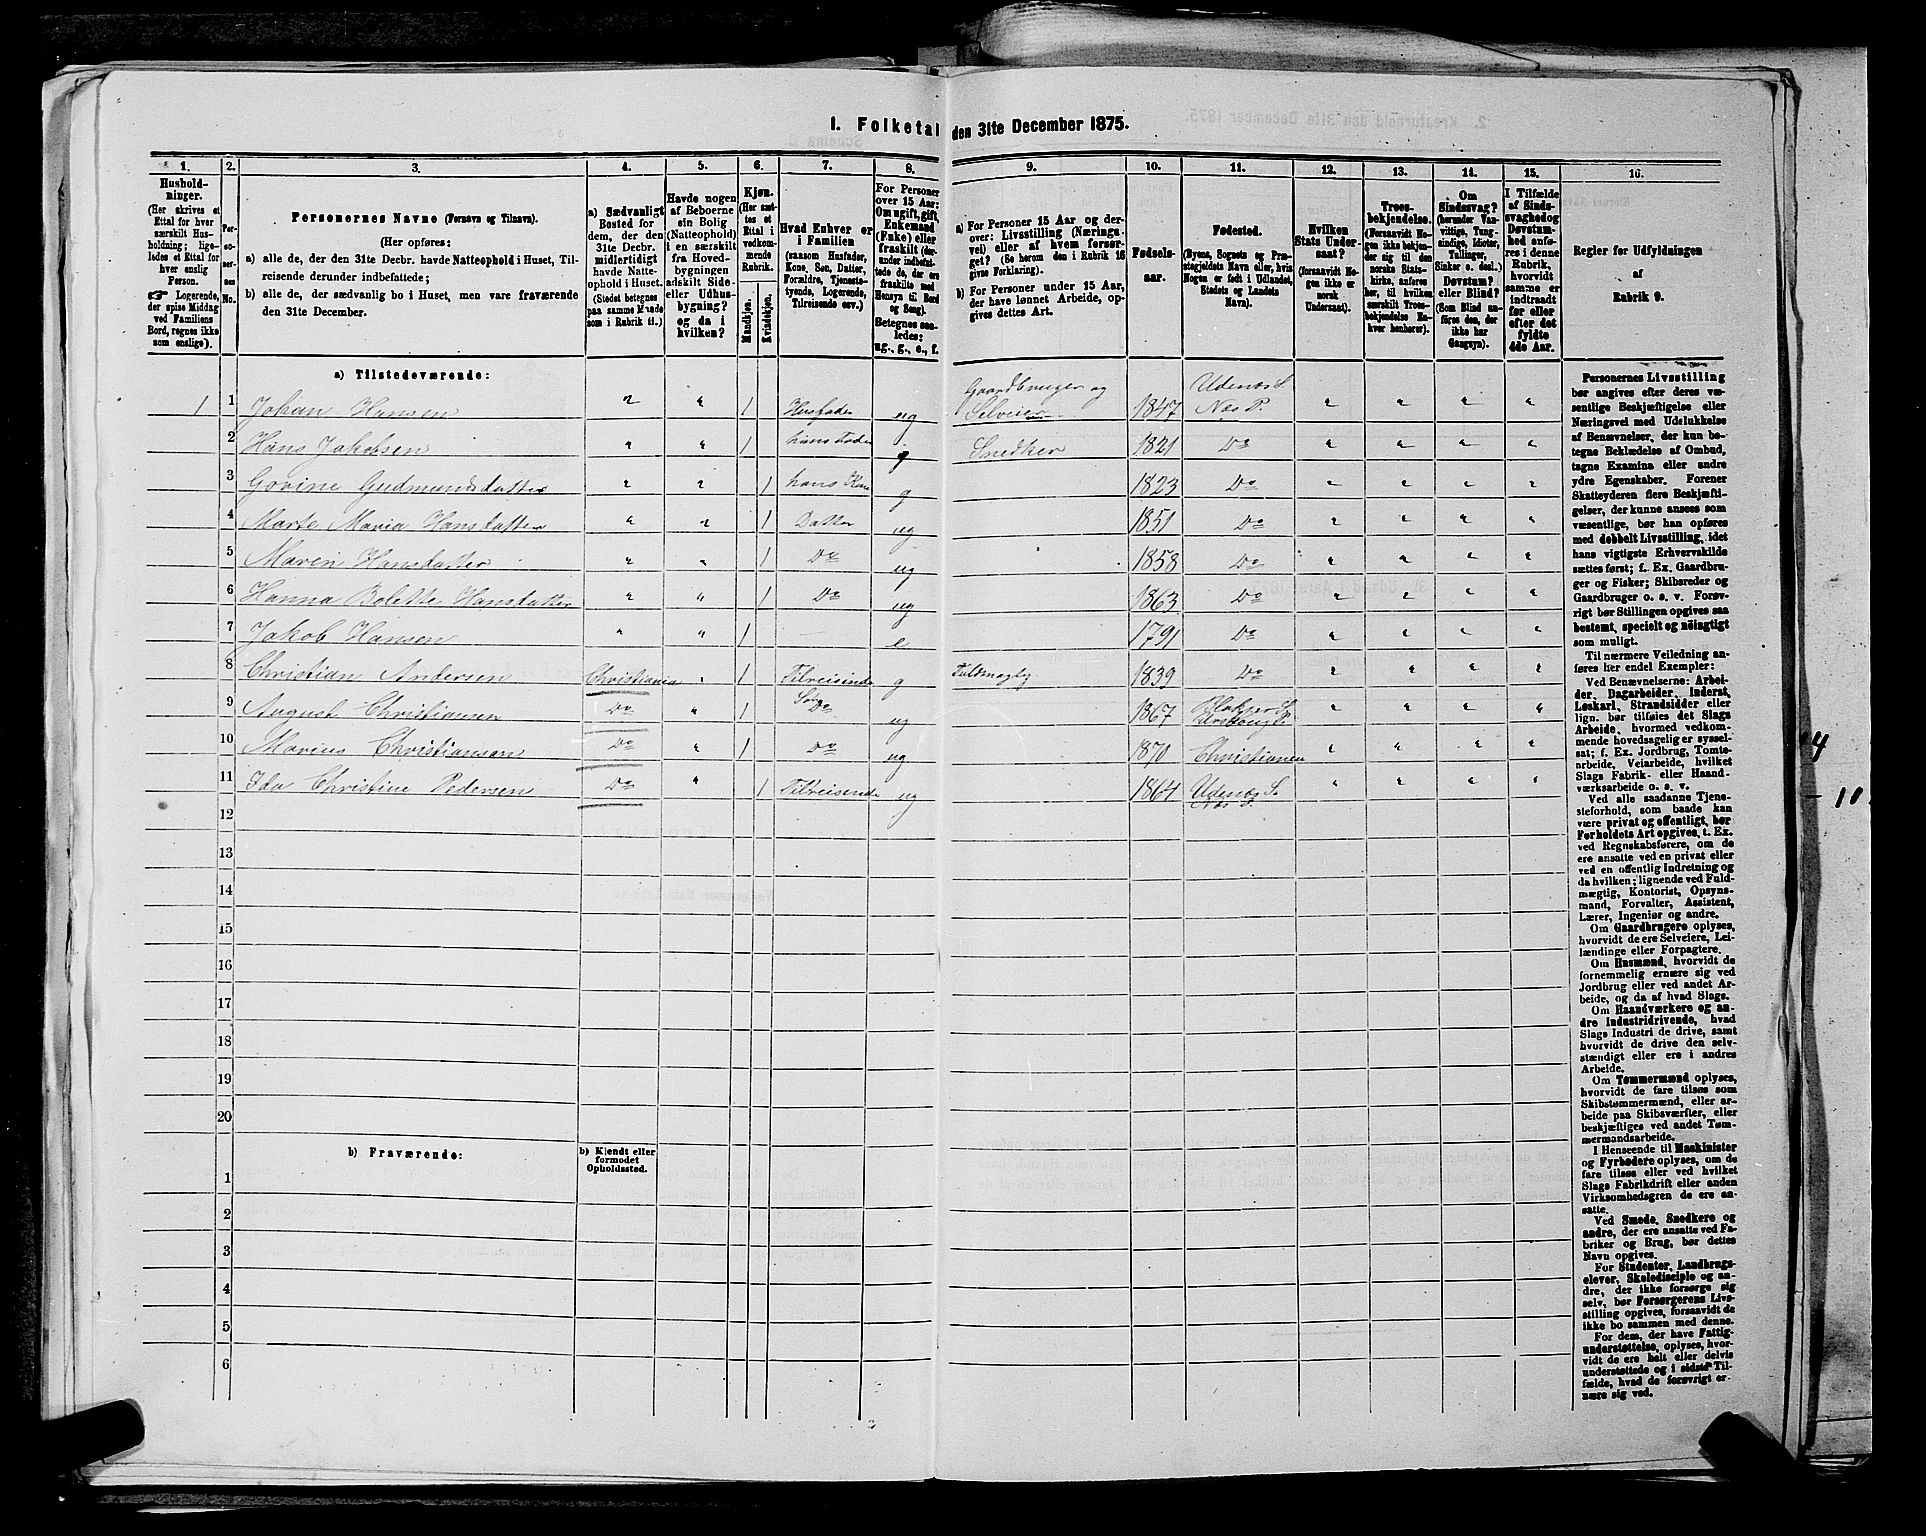 1. Folketal den 31te December 1875.
1. 2. 3. 4. 5. 6. 7. 8. 9. 10. 11. 12. 13. 14. 15. 16.
Hushold-
ninger.
(Her skrives et
Ettal for hver
særskilt Hus-
holdning; lige-
ledes et Ettal for
hver enslig
Person.
☞ Logerende,
der spise Middag
ved Familiens
Bord, regnes ikke
som enslige).
Per-
so-
ner-
nes
No.
Personernes Navne (Fornavn og Tilnavn).
(Her opføres:
a) alle de, der den 31te Decbr. havde Natteophold i Huset, Til-
reisende derunder indbefattede;
b) alle de, der sædvanlig bo i Huset, men vare fraværende
den 31te December.
a) Sædvanligt
Bosted for
dem, der den
31te Decbr.
midlertidigt
havde Natte-
ophold i Huset.
(Stedet betegnes
paa samme Maade
som i Rubrik 11.)
Havde nogen
af Beboerne
sin Bolig
(Natteophold)
i en særskilt
fra Hoved-
bygningen
adskilt Side-
eller Udhus-
bygning?
og da i
hvilken?
Kjøn.
(Her sæt-
tes et
Ettal i
vedkom-
mende
Rubrik.
Mandkjøn.
Kvindekjøn.
Hvad Enhver er
i Familien
(saasom Husfader,
Kone, Søn, Datter,
Forældre, Tjeneste-
tyende, Logerende,
Tilreisende osv.)
For Personer
over 15 Aar:
Om ugift, gift,
Enkemand
(Enke) eller
fraskilt (der-
under indbefat-
tede de, der ere
fraskilte med
Hensyn til Bord
og Seng).
Betegnes saa-
ledes:
ug., g., e., f.
a) For Personer 15 Aar og der-
over: Livsstilling (Nærings-
vei) eller af hvem forsør-
get? (Se herom den i Rubrik 16
givne Forklaring).
b) For Personer under 15 Aar,
der have lønnet Arbeide, op-
gives dettes Art.
Fødsels-
aar.
Fødested.
(Byens, Sognets og Præ-
stegjeldets Navn eller, hvis
Nogen er født i Udlandet,
Stedets og Landets
Navn).
Hvilken
Stats Under-
saat?
(forsaavidt No-
gen ikke er
norsk
Undersaat).
Troes-
bekjendelse.
(Forsaavidt No-
gen ikke bekjen-
der sig til den
norske Stats-
kirke, anføres
her, til hvilken
særskilt Troes-
bekjendelse En-
hver henhører).
Om
Sindssvag?
(herunder Van-
vittige, Tung-
sindige, Idioter,
Tullinger,
Sinker o. desl.)
Døvstum?
eller Blind?
(Som Blind an-
føres den, der
ikke har
Gangsyn).
I Tilfælde
af Sinds-
svaghed og
Døvstum-
hed anfø-
res i denne
Rubrik,
hvorvidt
samme er
indtraadt
før eller
efter det
fyldte
4de Aar.
Regler for Udfyldningen
af
Rubrik 9.
a) Tilstedeværende:
1 1 Johan Hansen " " 1 Husfader ug Gaardbruger og Selveier 1847 Udenæs S. Næs P. " " " "
2 Hans Jakobsen " " 1 hans Fader g Snedker 1821 Do " " " "
3 Govine Gudmundsdatter " " 1 hans Kone g 1823 Do " " " "
4 Marte Maria Hansdatter " " 1 Datter ug 1851 Do " " " "
5 Maren Hansdatter " " 1 Do ug 1858 Do " " " "
6 Hanna Bolette Hansdatter " " 1 Do ug 1863 Do " " " "
7 Jakob Hansen " " 1 e 1791 Do " " " "
8 Christian Andersen Christiania " 1 Tilreisende g Fuldmægtig 1839 Do " " " "
9 August Christiansen Do " 1 Do ug 1867 " " " "
10 Marius Christiansen Do " 1 Do ug 1870 Christiania " " " "
11 Ida Christine Pedersen Do " 1 Tilreisende ug 1864 Udenæs S. Næs P. " " " "
12
13
14
15
16
17
18
19
20
b) Fraværende: b) Kjendt eller
formodet
Opholdssted.
1
2
3
4
5
6
Personernes Livsstilling
bør angives efter deres væ-
sentlige Beskjæftigelse eller
Næringsvei med Udelukkelse
af Benævnelser, der kun be-
tegne Beklædelse af Ombud,
tagne Examina eller andre
ydre Egenskaber. Forener
Skatteyderen flere Beskjæfti-
gelser, der kunne ansees som
væsentlige, bør han opføres
med dobbelt Livsstilling, idet
hans vigtigste Erhvervskilde
sættes først; f. Ex. Gaardbru-
ger og Fisker; Skibsreder og
Gaardbruger o. s. v. Forøv-
rigt bør Stillingen opgives saa
bestemt, specielt og nøiagtigt
som muligt.
Til nærmere Veiledning an-
føres her endel Exempler:
Ved Benævnelserne: Arbei-
der, Dagarbeider, Inderst,
Løskarl, Strandsidder eller
lign. bør tilføies det Slags
Arbeide, hvormed vedkom-
mende hovedsagelig er syssel-
sat; f. Ex. Jordbrug, Tomte-
arbeide, Veiarbeide, hvilket
Slags Fabrik- eller Haand-
værksarbeide o. s. v.
Ved alle saadanne Tjene-
steforhold, som baade kan
være privat og offentligt, bør
Forholdets Art opgives, t. Ex.
ved Regnskabsførere, om de
ere ansatte ved en privat eller
ved en offentlig Indretning og
da hvilken; lignende ved Fuld-
mægtig, Kontorist, Opsyns-
mand, Forvalter, Assistent,
Lærer, Ingeniør og andre.
Om Gaardbrugere oplyses,
hvorvidt de ere Selveiere, Lei-
lændinge eller Forpagtere.
Om Husmænd, hvorvidt de
fornemmelig ernære sig ved
Jordbrug eller ved andet Ar-
beide, og da af hvad Slags.
Om Haandværkere og an-
dre Industridrivende, hvad
Slags Industri de drive, samt
hvorvidt de drive den selv-
stændigt eller ere i andres
Arbeide.
Om Tømmermænd oplyses,
hvorvidt de fare tilsøs som
Skibstømmermænd, eller ar-
beide paa Skibsværfter, eller
beskjæftiges ved andet Tøm-
mermandsarbeide.
I Henseende til Maskinister
og Fyrbødere oplyses, om de
fare tilsøs eller ved hvilket
Slags Fabrikdrift eller anden
Virksomhedsgren de ere an-
satte.
Ved Smede, Snedkere og
andre, der ere ansatte ved Fa-
briker og Brug, bør dettes
Navn opgives.
For Studenter, Landbrugs-
elever, Skoledisciple og an-
dre, der ikke forsørge sig
selv, bør Forsørgerens Livs-
stilling opgives, forsaavidt de
ikke bo sammen med denne.
For dem, der have Fattig-
understøttelse, oplyses, hvor-
vidt de ere helt eller delvis
understøttede og i sidste Til-
fælde, hvad de forøvrigt er-
nære sig ved.